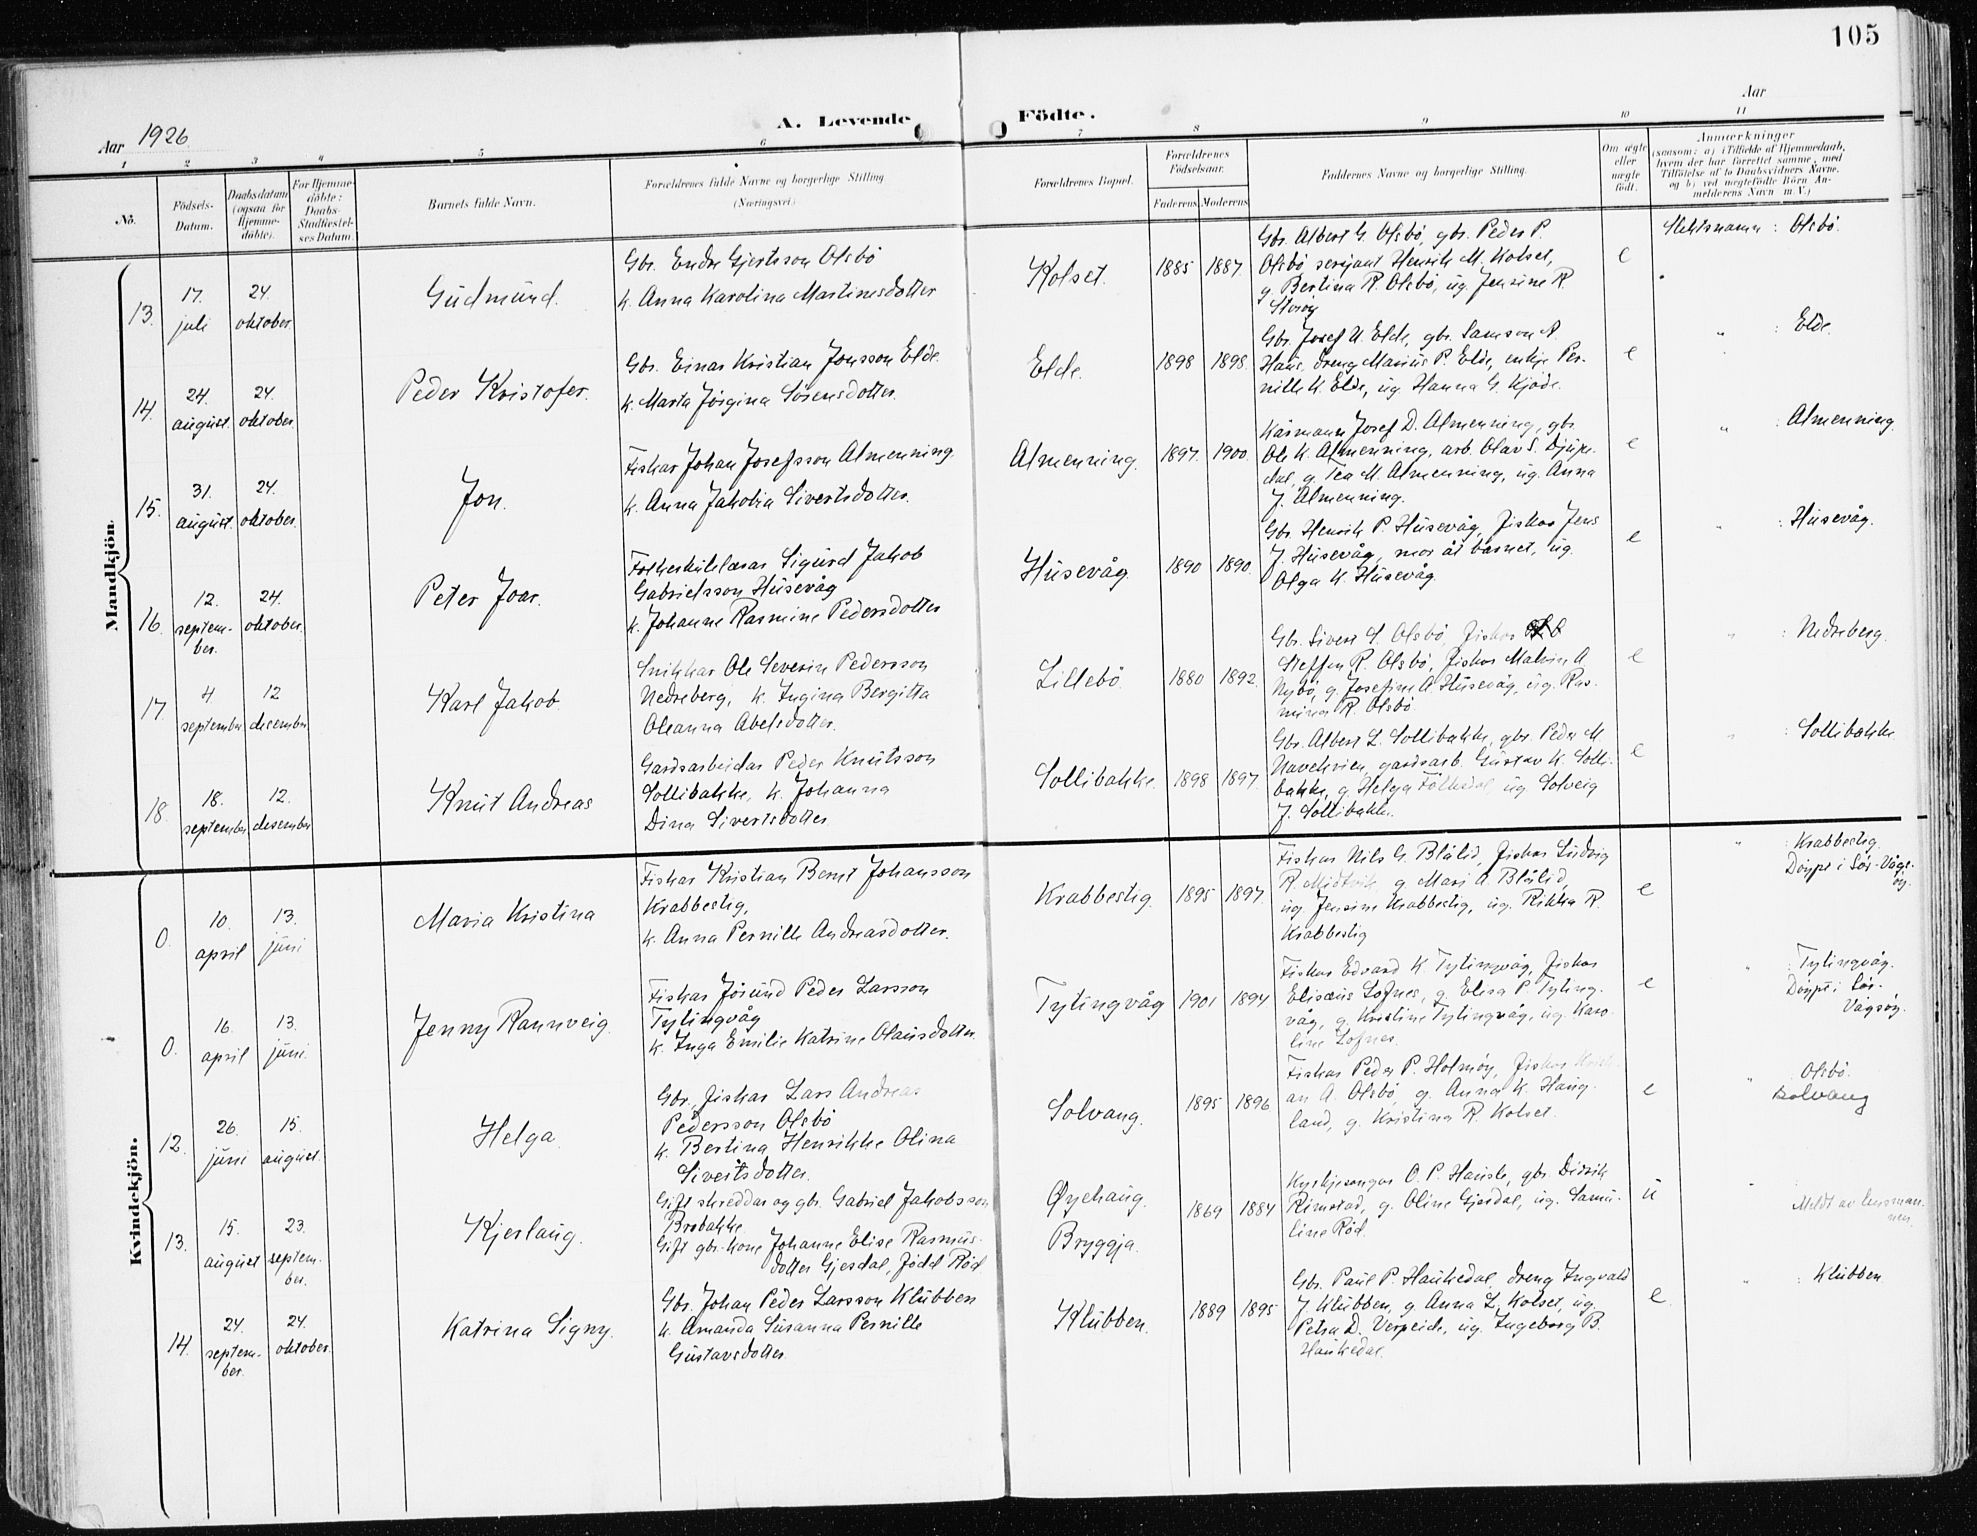 105
Aar 1926
A. Levende Födte.
Aar
1 2 3 4 5 6 7 8 9 10 11
No.
Födsels-Datum.
Daabsdatum (ogsaa for Hjemmedöbte).
For Hjemmedöbte: Daabs-Stadfæstelses Datum.
Barnets fulde Navn.
Forældrenes fulde Navne og borgerlige Stilling
(Næringsvei)
Forældrenes Bopæl.
Forældrenes Födselsaar.
Faderens Moderens
Faddernes Navne og borgerlige Stilling.
Om ægte eller uægte födt.
Anmærkninger
(saasom: a) i Tilfælde af Hjemmedaab,
hvem der har forrettet samme, med
Tilföielse af to Daabsvidners Navne,
og b) ved uægtefödte Börn An-
melderens Navn m. V.)
Mandkjön.
13.
17. juli
24. oktober.
Gudmund.
Gbr. Endre Gjertsson Olsbö
k. Anna Karolina Martinusdotter
Kolset.
1885 1887.
Gbr. Albert G. Olsbö, gbr. Peder P.
Olsbö serjant Henrik M. Kolset,
g. Bertina R. Olsbö, ug. Jensine R.
e
Slektsnamn: Olsbö.
14.
24. august.
24. oktober.
Peder Kristofer.
Gbr. Einar Kristian Jonsson Elde.
k. Marta Jörgina Sörensdotter.
Elde.
1898 1898.
Gbr. Josef N. Elde, gbr. Samson A.
Haus, dreng Marius P. Elde, enkje Per-
nille K. Elde, ug. Hanna G. Kjöde.
e
" : Elde.
15.
31. august.
24. oktober.
Jon.
Fiskar Johan Josefsson Almenning
k. Anna Jakobia Sivertsdotter.
Almenning.
1897. 1900.
Kårmann Josef D. Almenning, gbr.
Ole K. Almenning, arb. Olav S. Djupe-
dal, g. Tea M. Almenning, ug. Anna
J. Almenning.
e
" : Almenning.
16.
12. septem-
ber.
24. oktober.
Peter Joar.
Folkeskulelærar Sigurd Jakob
Gabrielsson Husevåg
k. Johanne Rasmine Pedersdotter
Husevåg.
1890 1890.
Gbr. Henrik P. Husevåg, fiskar Jens
J. Husevåg, mor åt barnet, ug.
Olga K. Husevåg.
e
" : Husevåg.
17.
4 september
12 desember
Karl Jakob
Snikkar Ole Severin Pedersson
Nedreberg, k. Ingina Bergitta
Oleanna Abelsdotter.
Lillebö.
1880 1892.
Gbr. Sivert S. Olsbö, fiskar
Steffen R. Olsbö, fiskar Malvin A.
Nybö, g. Josefine A. Husevåg, ug. Ras-
mina R. Olsbö.
e
" : Nedreberg.
18.
18. september
12. desember
Knut Andreas
Gardsarbeidar Peder Knutsson
Sollibakke, k. Johanna
Dina Sivertsdotter.
Sollibakke.
1898 1897.
Gbr. Albert L. Sollibakke, gbr. Peder M.
Navekvien, gardsarb. Gustav K. Solli-
bakke, g. Helga Folkedal, ug. Solveig
J. Sollibakke.
e
" : Sollibakke.
Kvindekjön.
0.
10. april
13. juni
Maria Kristina
Fiskar Kristian Bernt Johansson
Krabbestig,
k. Anna Pernille Andreasdotter.
Krabbestig.
1895 1897.
Fiskar Nils G. Blålid, fiskar Ludvig
R. Midtvik, g. Mari A. Blålid,
ug. Jensine Krabbestig, ug. Rikka R.
Krabbestig
e
" : Krabbestig.
Döypt i Sör-Vågs-
öy.
0.
16. april
13. juni.
Jenny Rannveig.
Fiskar Jörund Peder Larsson
Tytingvåg
k. Inga Emilie Katrine Olausdotter.
Tytingvåg
1901 1894
Fiskar Edvard K. Tytingvåg, fiskar
Elisæus Lofnes, g. Elisa P. Tyting-
våg, g. Kristine Tytingvåg, ug. Karo-
line Lofnes.
e
" : Tytingvåg.
Döypt i Sör-
Vågsöy.
12.
26. juni
15. august.
Helga.
Gbr. fiskar Lars Andreas
Pedersson Olsbö
k. Bertina Henrikke Olina
Sivertsdotter.
Solvang.
1895 1896
Fiskar Peder P. Holmöy, fiskar
an A. Olsbö, g. Anna K. Haug-
land, g. Kristina R. Kolset.
e
" Olsbö.
Solvang
13.
15. august
23. septem-
ber.
Kjerlaug.
Gift skreddar og gbr. Gabriel Jakobsson
Brobakke
Gift gbr.-kone Johanne Elise Rasmus-
dotter Gjesdal, född Röd.
Øyehaug.
Bryggja.
1869 1884
Kyrkjesongar O. P. Hausle, gbr. Didrik
Rimstad, g. Oline Gjesdal, ug. Samu-
line Röd.
u
" Meldt av lensman-
nen.
14.
24. septem-
ber.
24. oktober.
Katrina Signy.
Gbr. Johan Peder Larsson Klubben
k. Amanda Susanna Pernille
Gustavsdotter.
Klubben.
1889 1895
Gbr. Paul P. Haukedal, dreng Ingvald
J. Klubben, g. Anna L. Kolset, ug.
Petra D. Verpeide, ug. Ingeborg B.
Haukedal.
e.
" : Klubben